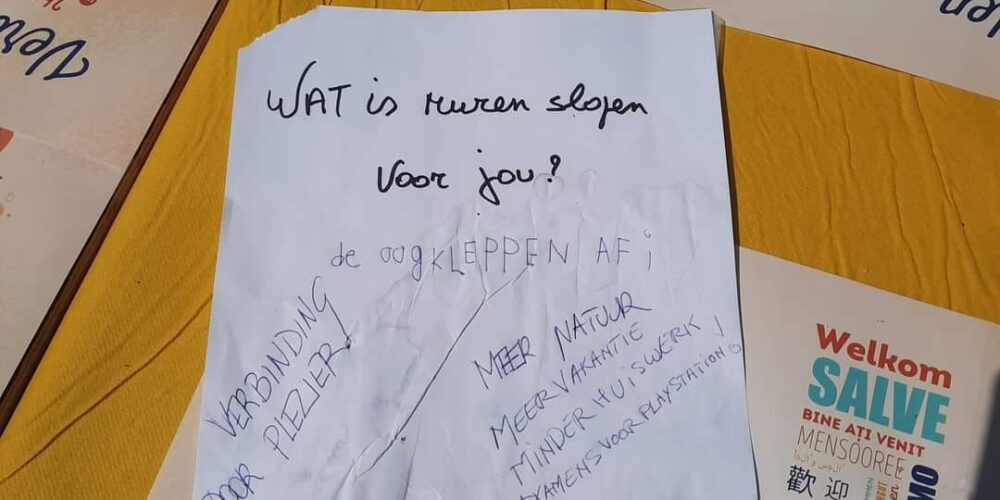 WAT is muren slopen
voor jou?
de oogKLEPPEN AF ;
VERBINDING
DOOR PLEZIER!
MEER NATUUR
MEER VAKANTIE
MINDER HUISWERK!
EXAMENS VOOR PLAYSTATION
Welkom
SALVE
BINE AȚI VENIT
MENSÓOREE
歡迎